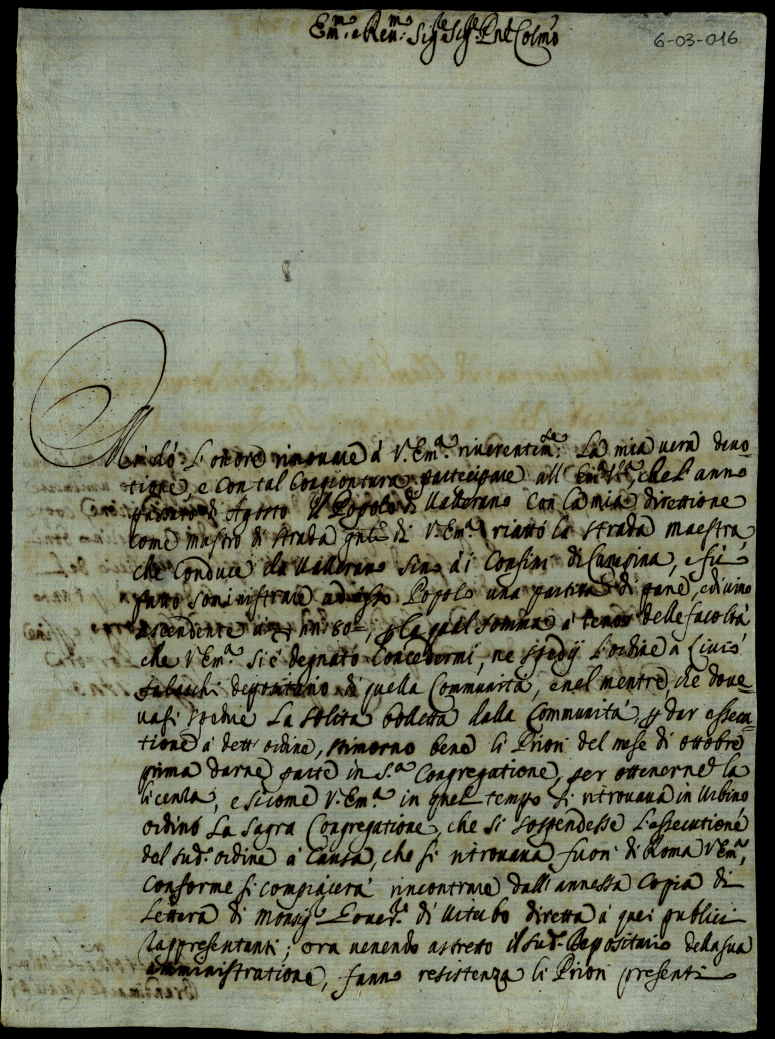 Em.mo e Rev.mo Sig.re Sig.re Pne Colmo
6-03-016
Mi dò l'onore rinovare à V. Em.a riverentem.te La mia vera devo
tione, e con tal Congiontura partecipare all' Em.a V.a che l'anno
passato di Agosto il Popolo di Vallerano con la mia direttione
come mastro di strada gnle di V. Em.a riattò la strada maestra,
che conduce da Vallerano sino à i Confini di Canepina, e fù
fatto soministrare ad esso Popolo una partita di pane, e di vino
ascendente a 80, p la qual somma à tenor delle facoltà
che V. Em.a si è degnato Concedermi, ne spedij l'ordine à
depositario di quella Communità, e nel mentre, che dove
vasi spedire La solita bolletta dalla Communità, p dar essecu
tione à dett' ordine, stimorno bene li Priori del mese di ottobre
prima darne parte in S.a Congregatione, per ottenerne la
licenza, e sicome V. Em.a in quel tempo si ritrovava in Urbino
ordinò La Sagra Congregatione, che si sospendesse l'essecutione
del sud.o ordine à Causa, che si ritrovava fuori di Roma V. Em.a,
Conforme si compiacerà rincontrare dall' annessa Copia di
Lettera di Monsig.r Gover.re di Viterbo diretta à quei publici
rappresentanti; ora venendo astretto il sud.o Depositario della sua
amministratione, fanno resistenza li Priori presenti